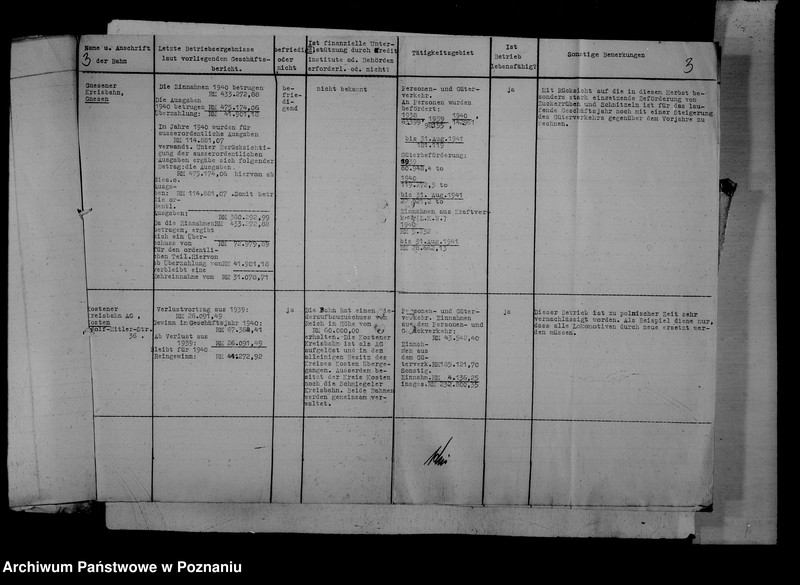 3
Name u. Anschrift
der Bahn
Letzte Betriebsergebnisse
laut vorliegenden Geschäfts-
bericht.
befriedig
oder
nicht
Ist finanzielle Unter-
stützung durch Kredit
institute od. Behörden
erforderl. od. nicht?
Tätigkeitsgebiet
Ist
Betrieb
lebensfähig?
Sonstige Bemerkungen
3
Gnesener
Kreisbahn,
Gnesen
Die Einnahmen 1940 betrugen
RM 433.272,88
Die Ausgaben
1940 betrugen RM 475.174,06
Überzahlung: RM 41.901,18
Im Jahre 1940 wurden für
ausserordentliche Ausgaben
RM 114.881,07
verwandt. Unter Berücksichti-
gung der ausserordentlichen
Ausgaben ergäbe sich folgender
Betrag: die Ausgaben
RM 475.174,06 hiervon ab
Ausga-
ben: RM 114.881,07 .Somit betr
die or-
dentl.
Ausgaben: RM 360.292,99
Da die Einnahmen RM 433.272,88
betragen, ergibt
sich ein Über-
schuss von RM 72.979,89
für den ordentli-
chen Teil. Hiervon
ab Überzahlung von RM 41.901,18
verbleibt eine
Mehreinnahme von RM 31.078,71
be-
frie-
di-
gend
nicht bekannt
Personen- und Güter-
verkehr.
An Personen wurden
befördert:
1938 1939 1940
bis 31.Aug.1941
Güterbeförderung:
1939
to
1940
to
bis 31. Aug.1941
to
Einnahmen aus Kraftver-
1940
bis 31.Aug.1941
ja
Mit Rücksicht auf die in diesem Herbst be-
sonders stark einsetzende Beförderung von
Zuckerrüben und Schnitzeln ist für das lau-
fende Geschäftsjahr noch mit einer Steigerung
des Güterverkehrs gegenüber dem Vorjahre zu
rechnen.
Kostener
Kreisbahn AG,
Kosten
Adolf-Hitler-Str.
36 .
Verlustvortrag aus 1939:
RM 26.091,49
Gewinn in Geschäftsjahr 1940:
RM 67.364,41
Ab Verlust aus
1939: RM 26.091,49
bleibt für 1940
Reingewinn: RM 41.272,92
ja
Die Bahn hat einen Wie-
deraufbauzuschuss vom
Reich in Höhe von
RM 60.000,00
erhalten. Die Kostener
Kreisbahn ist als AG
aufgelöst und in den
alleinigen Besitz des
Kreises Kosten überge-
gangen. Ausserdem be-
sitzt der Kreis Kosten
noch die Schmiegeler
Kreisbahn. Beide Bahnen
werden gemeinsam ver-
waltet.
Personen- und Güter-
verkehr. Einnahmen
aus den Personen- und
Gepäckverkehr:
RM 43.540,40
Einnah-
men aus
dem Gü-
terverk. RM 185.121,70
Sonstig.
Einnahm. RM 4.136,25
insges. RM
ja
Dieser Betrieb ist zu polnischer Zeit sehr
vernachlässigt worden. Als Beispiel diene nur,
dass alle Lokomotiven durch neue ersetzt wer-
den müssen.
Archiwum Państwowe w Poznaniu